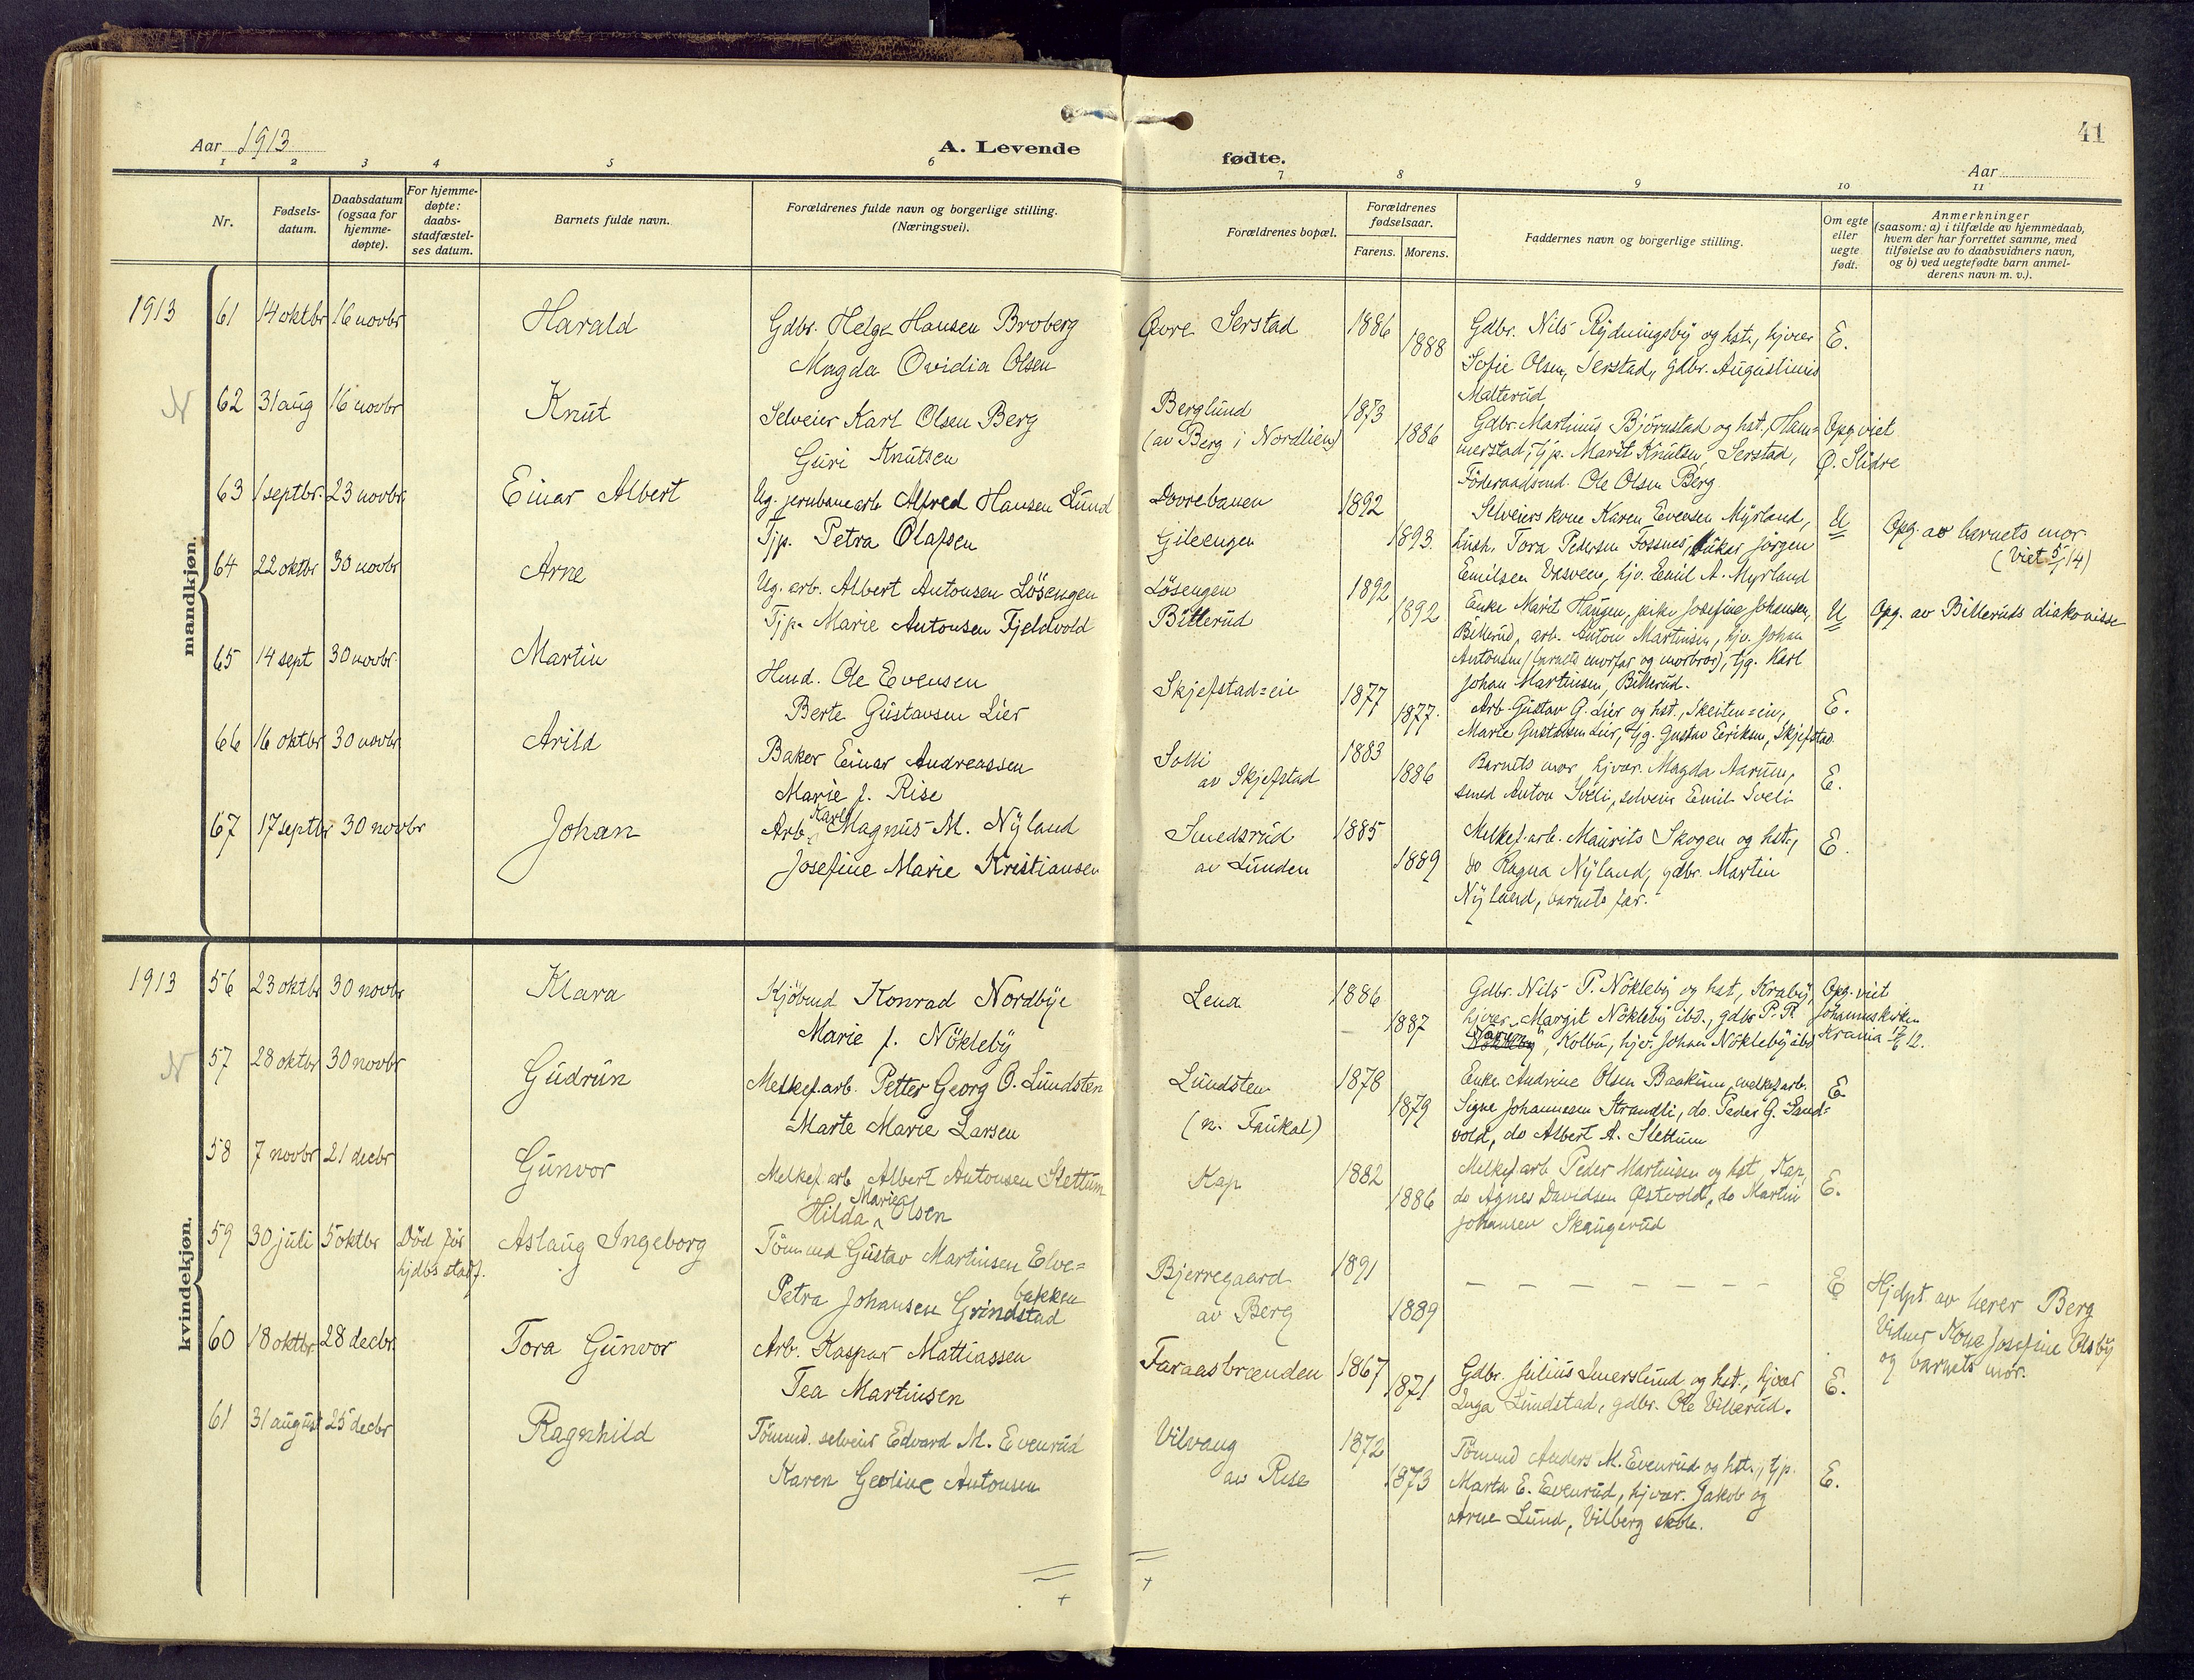 41
Aar 1913
A. Levende
fødte.
Aar
1 2 3 4 5 6 7 8 9 10 11
Nr.
Fødsels-
datum.
Daabsdatum
(ogsaa for
hjemme-
døpte).
For hjemme-
døpte:
daabs-
stadfæstel-
ses datum.
Barnets fulde navn.
Forældrenes fulde navn og borgerlige stilling.
(Næringsvei).
Forældrenes bopæl.
Forældrenes
fødselsaar.
Farens. Morens.
Faddernes navn og borgerlige stilling.
Om egte
eller
uegte
født.
Anmerkninger
(saasom: a) i tilfælde av hjemmedaab,
hvem der har forrettet samme, med
tilføielse av to daabsvidners navn,
og b) ved uegtefødte barn anmel-
derens navn m. v.).
mandkjøn.
1913 61 14 oktbr 16 novbr Harald
Gdbr. Helge Hansen Broberg
Magda Ovidia Olsen
Øvre Serstad 1886
1888
Gdbr. Nils Rydningsby og hst., hjvær
Sofie Olsen, Serstad, gdbr. Augustinus
Malterud
E.
N 62 31 aug 16 novbr Knut
Selveier Karl Olsen Berg
Guri Knutsen
Berglund
(av Berg i Nordlien)
1873
1886
Gdbr. Martinus Björnstad og hst., Ham-
merstad, tjp. Marit Knutsen Serstad,
Föderaadsmd. Ole Olsen Berg
Opg. viet
Ø. Slidre
63 1 septbr. 23 novbr. Einar Albert
Ug. jernbanearb Alfred Hansen Lund
Tjp. Petra Olafsen
Dovrebanen
Gileengen
1892
1893.
Selveierskone Karen Evensen Myrland,
hush. Tora Pedersen Fossnes, snekker Jörgen
Emilsen Vesveen, hjv. Emil A. Myrland
U
Opg. av barnets mor
(Viet 5/1 14)
64 22 oktbr 30 novbr Arne
Ug. arb. Albert Antonsen Lösengen
Tjp. Marie Antonsen Fjeldvold
Lösengen
Billerud
1892
1892
Enke Marit Haugen, pike Josefine Johansen,
Billerud, arb. Anton Martinsen, hjv. Johan
Antonsen (barnets morfar og morbror), tjg. Karl
Johan Martinsen, Billerud.
U
Opg. av Billeruds diakonisse
65 14 sept 30 novbr. Martin
Hmd. Ole Evensen
Berte Gustavsen Lier
Skjefstad=eie
1877
1877.
Arb. Gustav G. Lier og hst., Skeiten=eie,
Marie Gustavsen Lier, tjg. Gustav Eriksen, Skjefstad.
E.
66 16 oktbr 30 novbr Arild
Baker Einar Andreassen
Marie f. Rise
Solli
av Skjefstad
1883
1886
Barnets mor, hjvær. Magda Aarum,
smed Anton Sveli, selveier Emil Sveli
E.
67 17 septbr 30 novbr Johan
Arb. Karl Magnus M. Nyland
Josefine Marie Kristiansen
Smedsrud
av Lunden
1885
1889
Melkef.arb. Maurits Skogen og hst.,
do Ragna Nyland, gdbr. Martin
Nyland, barnets far.
E.
kvindekjøn.
1913 56 23 oktbr 30 novbr Klara
Kjöbmd Konrad Nordbye
Marie f. Nökleby
Lena
1886
1887
Gdbr. Nils P. Nökleby og hst, Kraby,
hjvær. Margit Nökleby ibd., gdbr P. R.
Narum, Kolbu, hjv. Johan Nökleby ibd
Opg. viet
Johanneskirken
Krania 12.
N 57 28 oktbr 30 novbr Gudrun
Melkef.arb. Petter Georg O. Lundsten
Marte Marie Larsen
Lundsten
(n. Faukal)
1878
1879
Enke Andrine Olsen Baakinn, melkef.arb.
Signe Johannesen Strandli, do. Peder G. Sand=
vold, do Albert A. Slettum
E
58 7 novbr 21 decbr Gunvor
Melkef.arb. Albert Antonsen Slettum
Hilda Marie Olsen
Kap
1882
1886
Melkef.arb Peder Martinsen og hst, Kap,
do Agnes Davidsen Østvold, do Martin
Johansen Skaugerud
E.
59 30 juli 5 oktbr Död för
hjdbs stadf.
Aslaug Ingeborg
Tömmd Gustav Martinsen Elve=
bakken
Petra Johansen Grindstad
Bjerregaard
av Berg
1891
1889
— — — — — — —
E
Hjdpt. av lærer Berg
Vidner Kone Josefine Olsby
og barnets mor.
60 18 oktbr 28 decbr. Tora Gunvor
Arb. Kaspar Mattiassen
Tea Martinsen
Faraasbrænden
1867
1871
Gdbr. Julius Smerslund og hst., hjvær
Inga Lundstad, gdbr. Ole Villerud.
E.
61 31 august 25 decbr Ragnhild
Tömmd. selveier Edvard M. Evenrud
Karen Geoline Antonsen
Vilvang
av Rise
1872
1873
Tömmd Anders M. Evenrud og hst., tjp.
Marta E. Evenrud, hjvær. Jakob og
Arne Lund, Vilberg skole.
E.